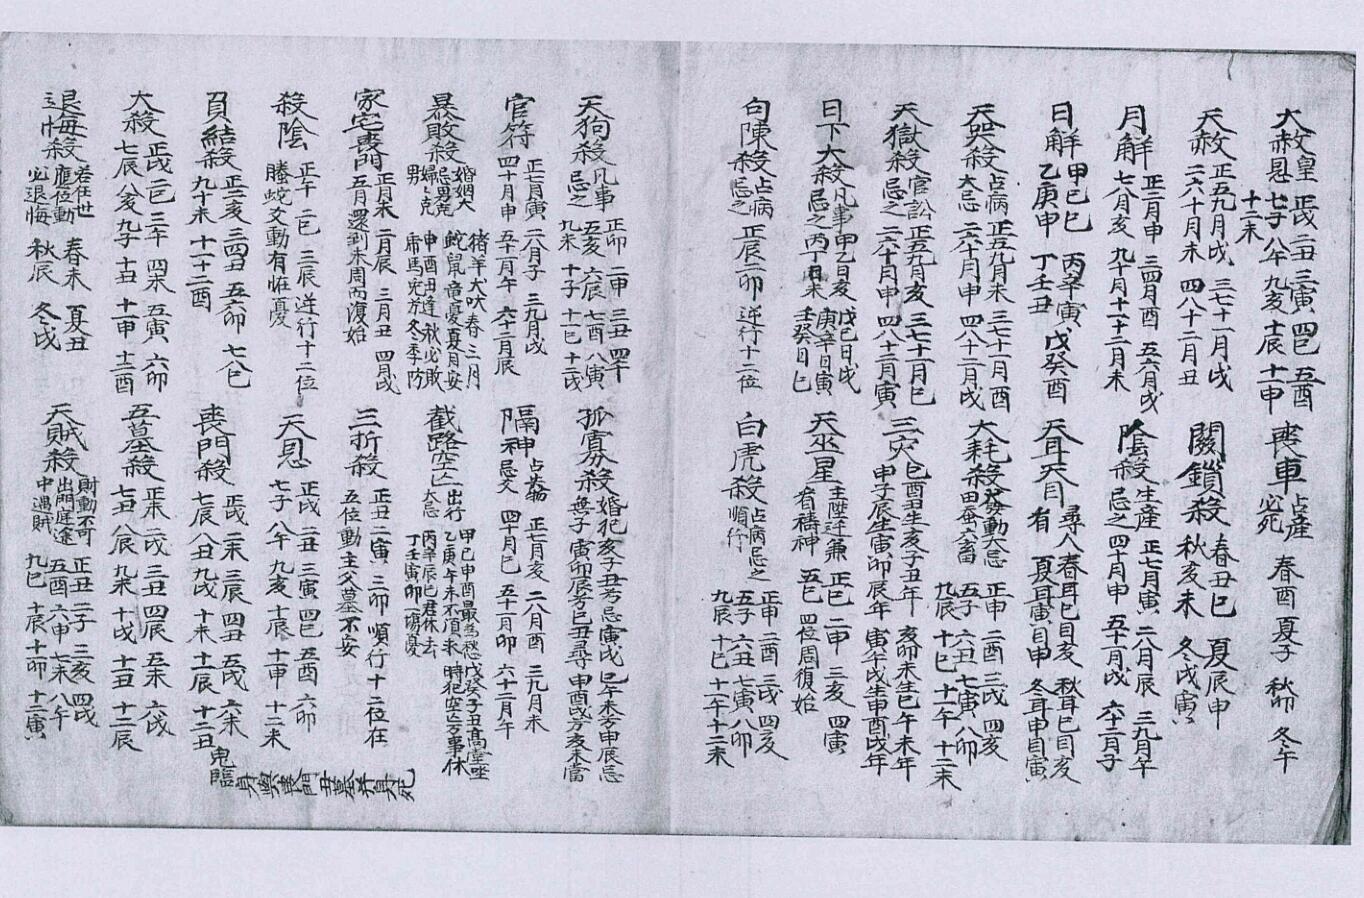 大赦 皇恩 正戌 二丑 三寅 四巳 五酉 六卯 七子 八午 九亥 十辰 十一申 十二未
喪車 占產必死 春酉 夏子 秋卯 冬午
天赦 正五九月戌 三七十一月戌 二六十月未 四八十二月丑
關鎖殺 春丑巳 夏辰申 秋亥未 冬戌寅
月解 正二月申 三四月酉 五六月戌 七八月亥 九十月 十一十二月未
陰殺 生產忌之 正七月寅 二八月辰 三九月午 四十月申 五十一月戌 六十二月子
日解 甲己巳 丙辛寅 戊癸酉 乙庚申 丁壬丑
天耳天目 尋人有 春耳巳目亥 秋耳巳目亥 夏耳寅目申 冬耳申目寅
天哭殺 占病大忌 正五九月未 三七十一月酉 二六十月申 四十二月戌
大耗殺 發動大忌田蚕六畜 正申 二酉 三戌 四亥 五子 六丑 七寅 八卯 九辰 十巳 十一午 十二未
天獄殺 官訟忌之 正五九月亥 三七十一月巳 二六十月申 四八十二月寅
三灾 巳酉丑生亥子丑年 亥卯未生巳午未年 申子辰生寅卯辰年 寅午戌生申酉戌年
日下大殺 凡事忌之 甲乙日亥 戊己日戌 丙丁日未 庚辛日寅 壬癸日巳
天巫星 主陞迁兼有禱神 正巳 二申 三亥 四寅 五巳 四位周復始
句陳殺 占病忌之 正辰二卯逆行十二位
白虎殺 占病忌之順行 正申 二酉 三戌 四亥 五子 六丑 七寅 八卯 九辰 十巳 十一午 十二未
天狗殺 凡事忌之 正卯 二申 三丑 四午 五亥 六辰 七酉 八寅 九未 十子 十一巳 十二戌
孤寡殺 婚犯無子 亥子丑芳忌寅戌 巳午未芳申辰忌 寅卯辰芳巳丑尋 申酉戌芳亥未當
官符 正七月寅 二八月子 三九月戌 四十月申 五十一月午 六十二月辰
隔神 忌文 正七月亥 二八月酉 三九月未 四十月巳 五十一月卯 六十二月午
暴敗殺 婚姻大忌男剋婦婦剋男 猪羊犬吠春三月 蛇鼠竜憂夏月安 申酉丑逢秋必敗 虎馬兎兮冬季防
截路空亡 出行大忌 甲己申酉最為愁 乙庚午未不須求 丙辛辰巳君休去 丁壬寅卯一場憂 戊癸子丑高堂坐 時犯空亡万事休
家宅喪門 正月未 二月辰 三月丑 四月戌 五月還到未周而復始
三折殺 正丑 二寅 三卯順行十二位在五位動主父墓不安
殺陰 正午 二巳 三辰逆行十二位 螣蛇爻動有怪憂
天恩 正戌 二丑 三寅 四巳 五酉 六卯 七子 八午 九亥 十辰 十一申 十二未
負結殺 正二亥 三四丑 五六卯 七八巳 九十未 十一十二酉
喪門殺 正戌 二未 三辰 四丑 五戌 六未 七辰 八丑 九戌 十未 十一辰 十二丑
鬼臨身與喪門五墓并身死
大殺 正戌 二巳 三午 四未 五寅 六卯 七辰 八亥 九子 十丑 十一申 十二酉
五墓殺 正未 二戌 三丑 四辰 五未 六戌 七丑 八辰 九未 十戌 十一丑 十二辰
退悔殺 若在世應位動必退悔 春未 夏丑 秋辰 冬戌
天賊殺 財動不可出門庭途中遇賊 正丑 二子 三亥 四戌 五酉 六申 七未 八午 九巳 十辰 十一卯 十二寅